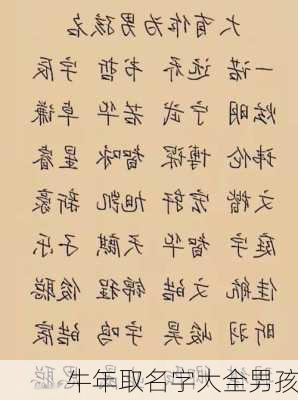 大有作为男孩名
一诺 远乔 书哲 宇辰
炫明 宁武 若华 卓谦
玮伦 博琛 智咏 星睿
文楷 宏轩 旭凯 新豪
庭宇 智华 天麒 子乐
佳航 文皓 锦程 俊聪
昕羽 峻昊 宇鸣 皓宸
牛年取名字大全男孩